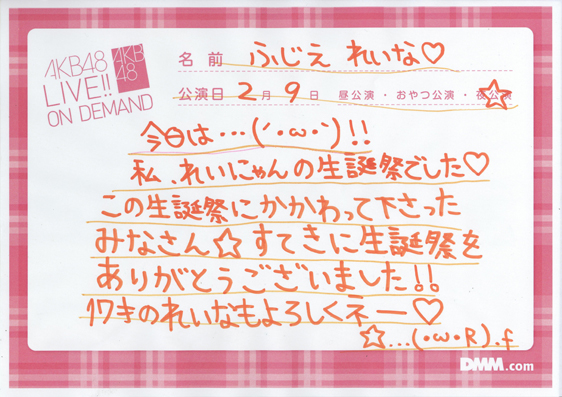 AKB48
LIVE!!
ON DEMAND
AKB
48
名前 ふじえ れいな♡
公演日 2月9日 昼公演・おやつ公演・夜公演
今日は…(´・ω・`)!!
私、れいにゃんの生誕祭でした♡
この生誕祭にかかわって下さった
みなさん☆すてきに生誕祭を
ありがとうございました!!
17きのれいなもよろしくネー♡
☆…(・ω・R).f
DMM.com